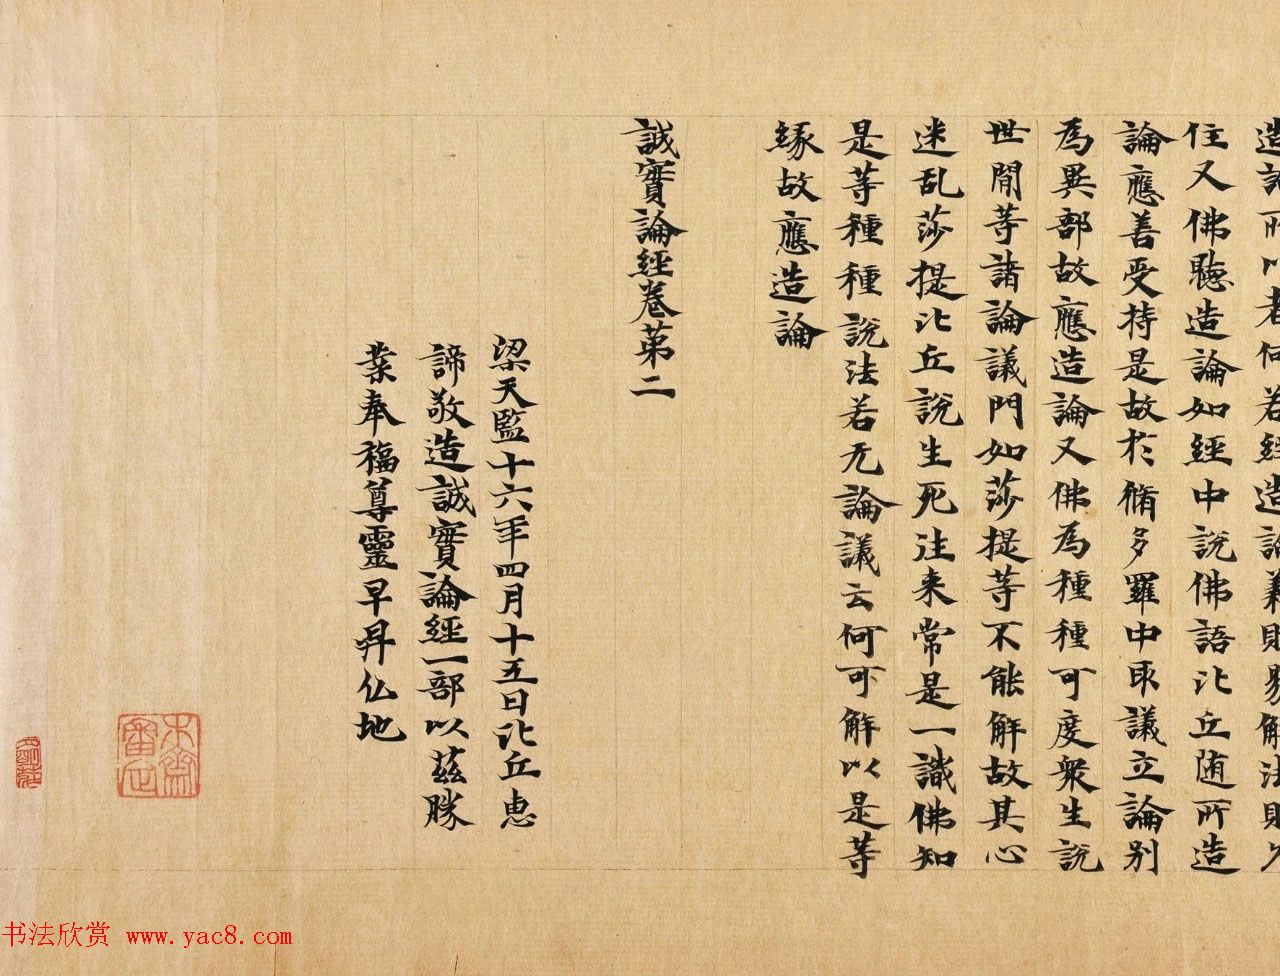 造論所以者何若經造論義則易解法則久
住又佛聽造論如經中說佛語比丘随所造
論應善受持是故於脩多羅中取議立論别
為異部故應造論又佛為種種可度衆生說
世閒等諸論議門如莎提等不能解故其心
迷乱莎提比丘說生死往来常是一識佛知
是等種種說法若无論議云何可解以是等
緣故應造論
誠實論經卷第二
梁天監十六年四月十五日比丘恵
諦敬造誠實論經一部以茲勝
業奉福尊靈早昇仏地
木齋審定
书法欣赏 www.yac8.com